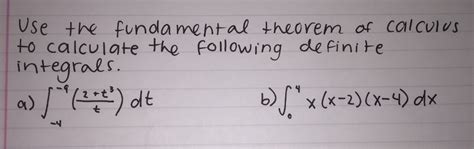 Use the fundamental theorem of calculus
to calculate the following definite
integrals.
a) ∫₋₄⁻⁹ ((2+t³)/t) dt b) ∫₀⁴ x(x-2)(x-4) dx